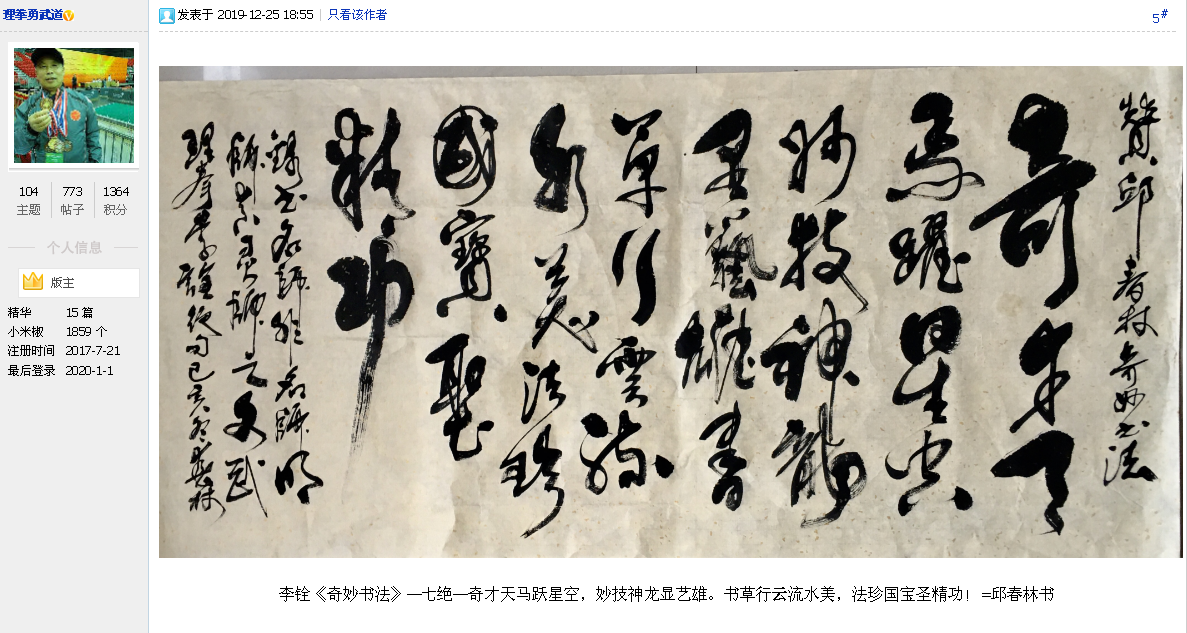 理拳勇武道
104
773
1364
主题
帖子
积分
个人信息
版主
精华 15 篇
小米椒 1859 个
注册时间 2017-7-21
最后登录 2020-1-1
发表于 2019-12-25 18:55 只看该作者
5#
赞邱春林奇妙书法
奇才天
馬躍星空
妙技神龍
显藝雄書
草行雲流
水美法珍
國寳聖
精功
李铨《奇妙书法》—七绝—奇才天马跃星空，妙技神龙显艺雄。书草行云流水美，法珍国宝圣精功！=邱春林书